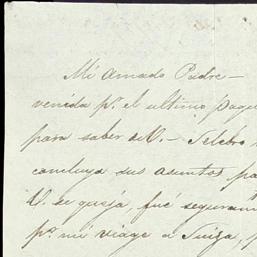 Mi Amado Padre —
venida p.r el ultimo paque
para saber de V. — Celebro
concluya sus asuntos, pa
V. se queja, fué seguram
p.r mi viage a Suiza,